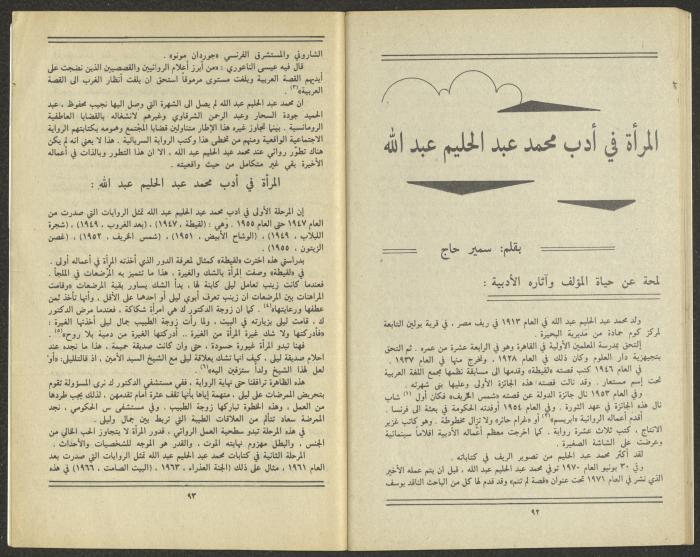 المرأة في أدب محمد عبد الحليم عبد الله
بقلم: سمير حاج
لمحة عن حياة المؤلف وآثاره الأدبية :
ولد محمد عبد الحليم عبد الله في العام ١٩١٣ في ريف مصر ، في قرية بولين التابعة
لمركز كوم حمادة من مديرية البحيرة .
إلتحق بمدرسة المعلمين الأولية في القاهرة وهو في الرابعة عشرة من عمره . ثم التحق
بتجهيزية دار العلوم وكان ذلك في العام ١٩٢٨ ، وتخرج منها في العام ١٩٣٧ .
في العام ١٩٤٦ كتب قصته «لقيطة» وقدمها الى مسابقة نظمها مجمع اللغة العربية
تحت إسم مستعار . وقد نالت قصته هذه الجائزة الأولى وعليها بنى شهرته .
وفي العام ١٩٥٣ نال جائزة الدولة عن قصته «شمس الخريف» فكان أول (١) شاب
نال هذه الجائزة في عهد الثورة . وفي العام ١٩٥٤ أوفدته الحكومة في بعثة الى فرنسا .
أقدم أعماله الروائية «ابريسم»(٢) أو «غرام حائر» ولا تزال مخطوطة . وهو كاتب غزير
الانتاج ، كتب ثلاث عشرة رواية . كما اخرجت معظم أعماله الأدبية افلاماً سينمائية
وعرضت على الشاشة الصغيرة .
لقد أكثر محمد عبد الحليم من تصوير الريف في كتاباته .
وفي ٣٠ يونيو العام ١٩٧٠ توفي محمد عبد الحليم عبد الله ، قبل ان يتم عمله الأخير
الذي نشر في العام ١٩٧١ تحت عنوان «قصة لم تتم» وقد قدم لها كل من الباحث الناقد يوسف
٩٢
الشاروني والمستشرق الفرنسي «جوردان مونو» .
قال فيه عيسى الناعوري : «من أبرز أعلام الروائيين والقصصيين الذين نضجت على
أيديهم القصة العربية وبلغت مستوى مرموقاً استحق ان يلفت أنظار الغرب الى القصة
العربية»(٣) .
ان محمد عبد الحليم عبد الله لم يصل الى الشهرة التي وصل اليها نجيب محفوظ ، عبد
الحميد جودة السحار وعبد الرحمن الشرقاوي وغيرهم لانشغاله بالقضايا العاطفية
الرومانسية . بينما تجاوز غيره هذا الإطار متناولين قضايا المجتمع وهمومه بكتابتهم الرواية
الاجتماعية الواقعية ومنهم من تخطى هذا وكتب الرواية السريالية . هذا لا يعني انه لم يكن
هناك تطوّر روائي عند محمد عبد الحليم عبد الله ، الا ان هذا التطور وبالذات في أعماله
الأخيرة بقي غير متكامل من حيث واقعيته .
المرأة في أدب محمد عبد الحليم عبد الله :
إن المرحلة الأولى في أدب محمد عبد الحليم عبد الله تمثل الروايات التي صدرت من
العام ١٩٤٧ حتى العام ١٩٥٥ . وهي : (لقيطة ، ١٩٤٧) ، (بعد الغروب ، ١٩٤٩) ، (شجرة
اللبلاب ، ١٩٤٩) ، (الوشاح الأبيض ، ١٩٥١) ، (شمس الخريف ، ١٩٥٢) ، (غصن
الزيتون ، ١٩٥٥) .
بدراستي هذه اخترت «لقيطة» كمثال لمعرفة الدور الذي أخذته المرأة في أعماله أولى .
في «لقيطة» وصفت المرأة بالشك والغيرة ، هذا ما تتميز به المرضعات في الملجأ .
فعندما كانت زينب تعامل ليلى كابنة لها ، بدأ الشك يساور بقية المرضعات «وقامت
المراهنات بين المرضعات ان زينب تعرف أبوي ليلى أو احدها على الأقل ، وأنها تأخذ ثمن
عطفها ورعايتها»(٤) . كما ان زوجة الدكتور ك هي امرأة شكاكة ، فعندما مرض الدكتور
ك ، قامت ليلى بزيارته في البيت ، ولما رأت زوجة الطبيب جمال ليلى أخذتها الغيرة :
«فأدركتها ولا شك غيرة المرأة من الغيرة .. أدركتها الغيرة من دمية بلا روح»(٥) .
فهنا تبدو المرأة غيورة حسودة ، حتى وان كانت صديقة حميمة ، هذا ما نجده عند
احلام صديقة ليلى ، كيف انها تشك بعلاقة ليلى مع الشيخ السيد الأمين ، اذ قالت لليلى : «أو
لعل لهذا الشيخ ولداً ستزفين اليه»(٦)
هذه الظاهرة ترافقنا حتى نهاية الرواية ، ففي مستشفى الدكتور ك نرى المسؤولة تقوم
بتحريض الممرضات على ليلى ، متهمة إياها بأنها تقف عثرة أمام تقدمهن ، لذلك يجب طردها
من العمل ، وهذه الخطوة تباركها زوجة الطبيب . وفي مستشفى س الحكومي ، نجد
الممرضة سعاد تتألم من العلاقات الطيبة التي تربط بين جمال وليلى .
في هذه المرحلة تبدو سطحية العمل الروائي ، فدور المرأة لا يتجاوز الحب الخالي من
الجنس ، والبطل مهزوم نهايته الموت ، والقدر هو الموجه للشخصيات والأحداث .
المرحلة الثانية في كتابات محمد عبد الحليم عبد الله تمثل الروايات التي صدرت بعد
العام ١٩٦١ ، مثال على ذلك (الجنة العذراء ، ١٩٦٣) ، (البيت الصامت ، ١٩٦٦) في هذه
٩٣